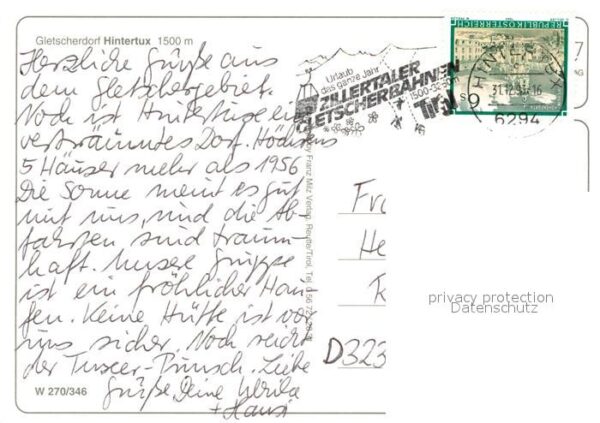 Gletscherdorf Hintertux 1500 m
Herzliche Grüße aus
dem Gletschergebiet.
Noch ist Hintertux ein
verträumtes Dorf. Höchstens
5 Häuser mehr als 1956
Die Sonne meint es gut
mit uns, und die Ab-
fahrten sind traum-
haft. Unsere Gruppe
ist ein fröhlicher Hau-
fen. Keine Hütte ist vor
uns sicher. Noch reicht
der Tuxer-Punsch. Liebe
Grüße Deine Ulrike
+ Hansi
W 270/346
Franz Milz Verlag, Reutte/Tirol, Tel.
Urlaub
das ganze Jahr
ZILLERTALER
GLETSCHERBAHNEN
1500-32
Tirol
REPUBLIK ÖSTERREICH
31.12.
-16
6294
7
Fr
He
D323
privacy protection
Datenschutz